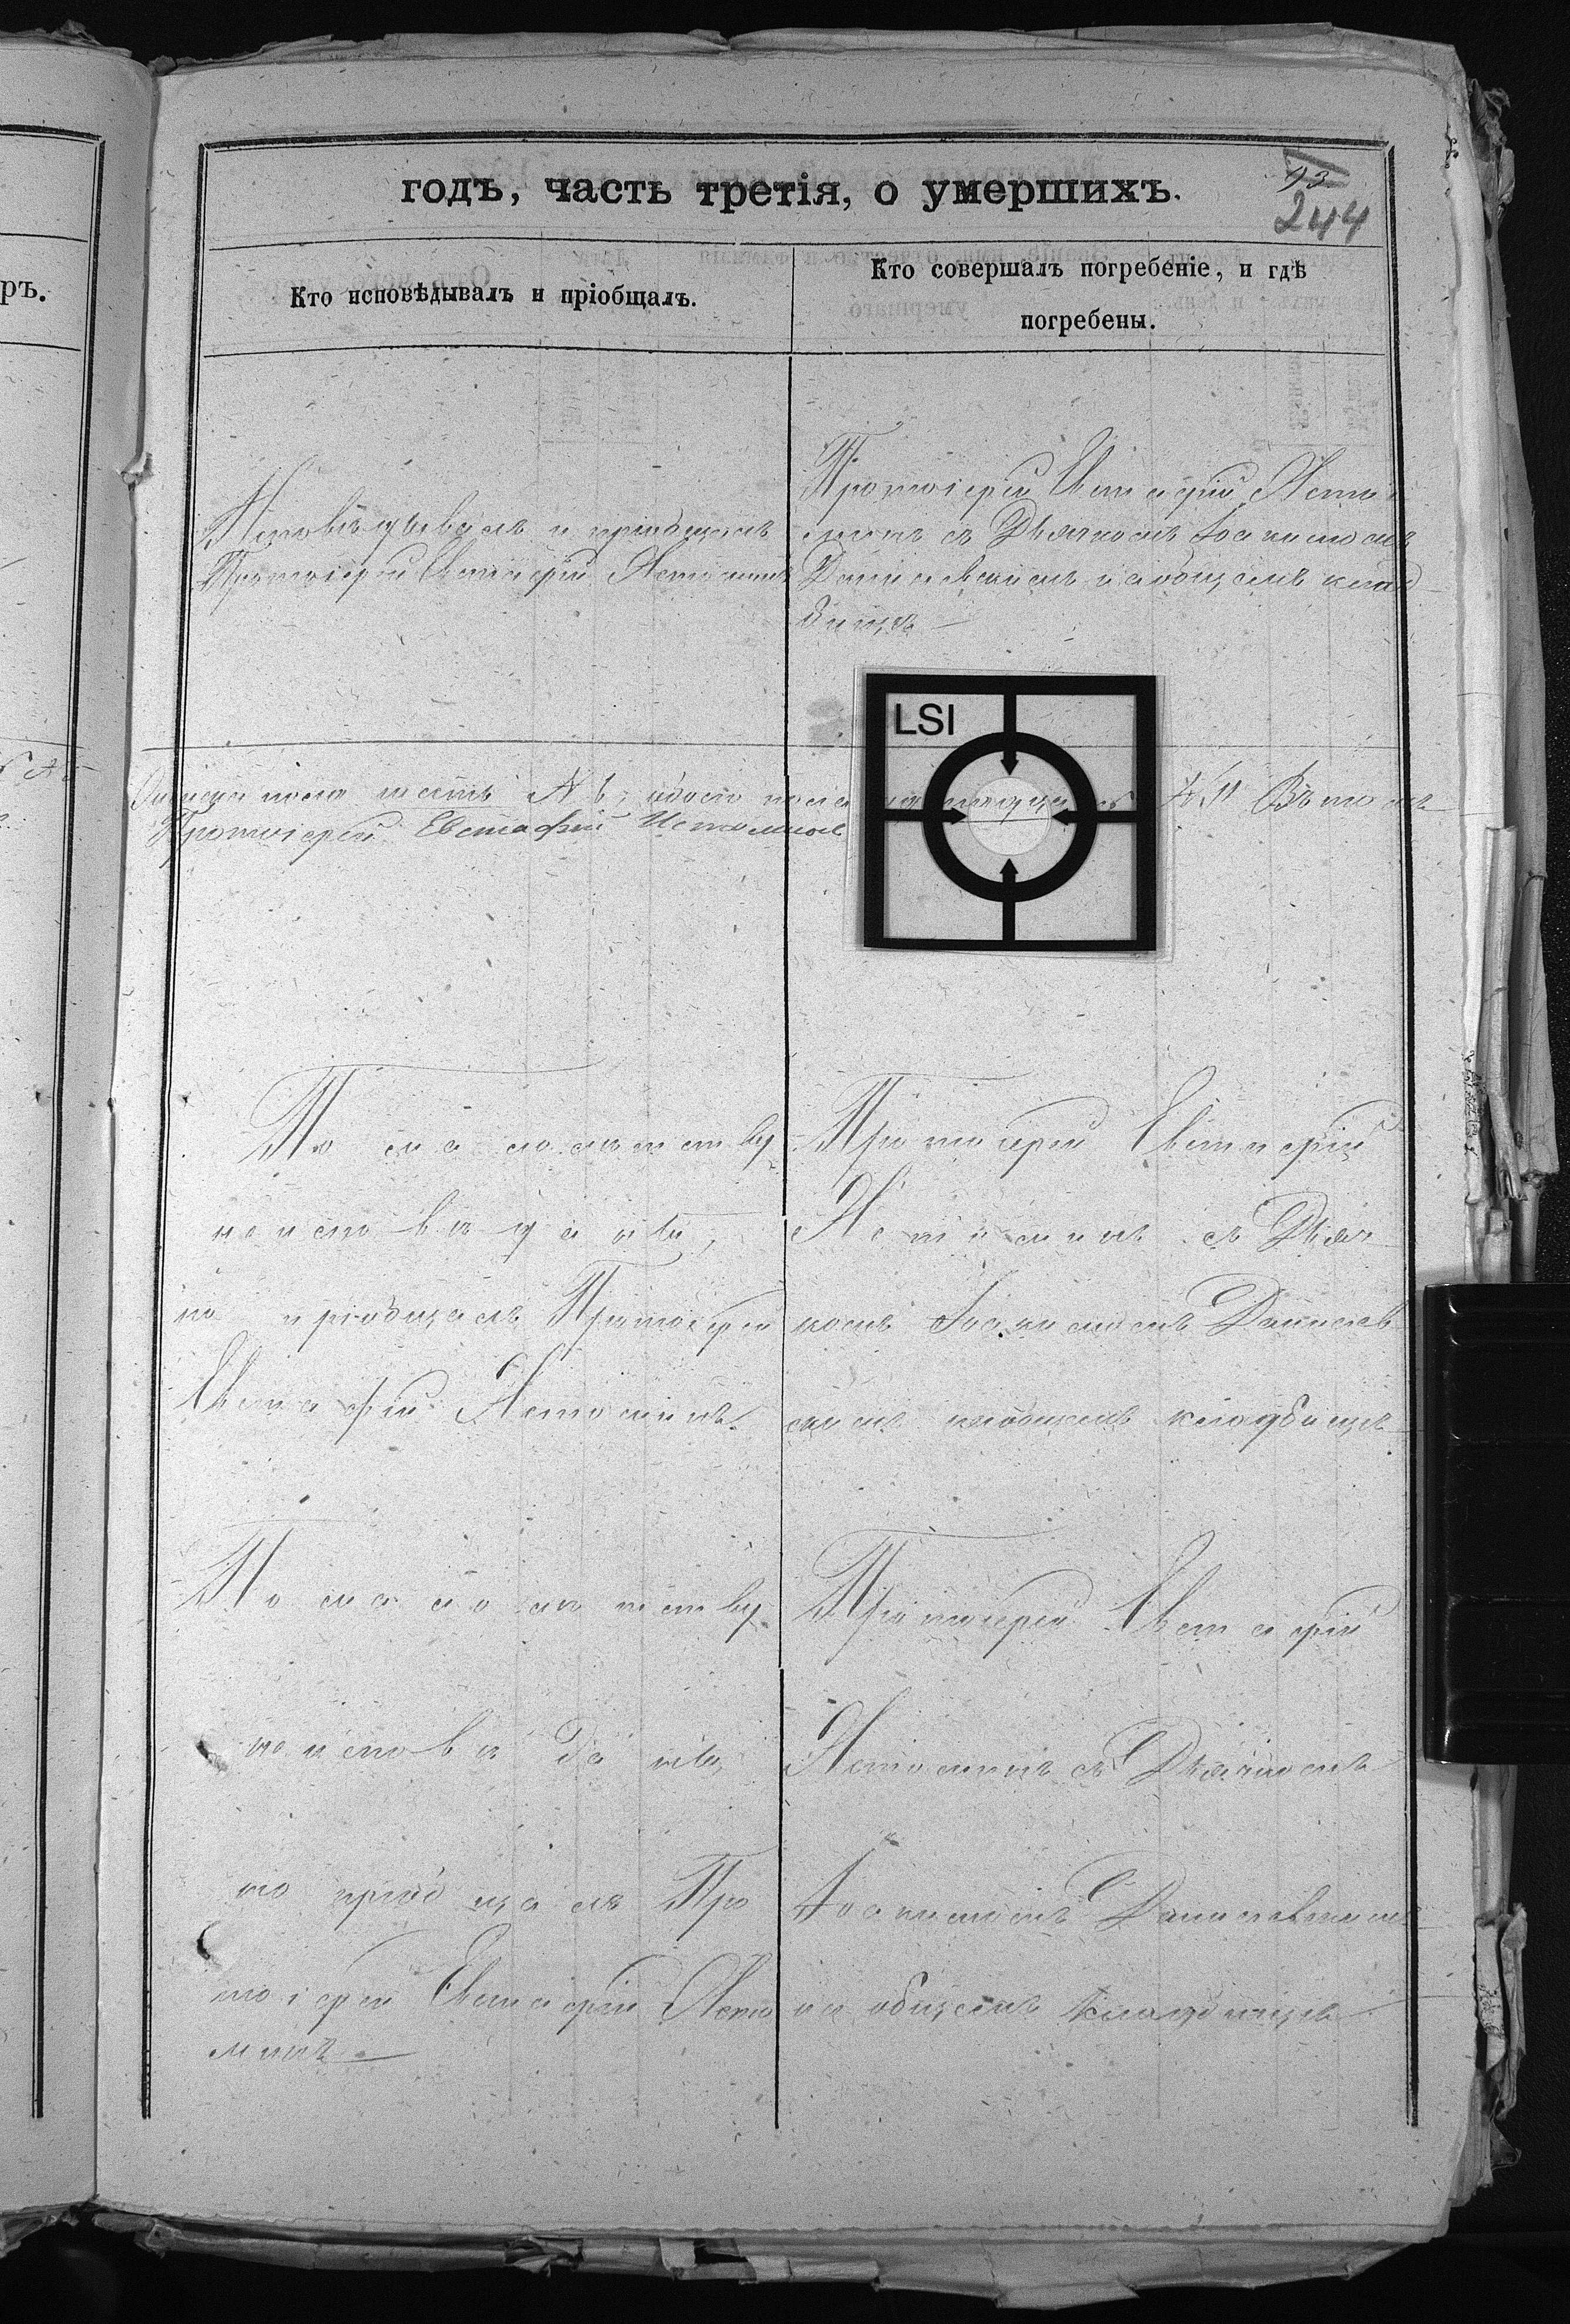 годъ, часть третія, о умершихъ.
93
244
Кто исповѣдывалъ и пріобщалъ.
Кто совершалъ погребеніе, и гдѣ
погребены.
ръ.
Исповѣдывалъ и пріобщалъ
Протоіерей Евстафій Истоминъ
Протоіерей Евстафій Исто
минъ съ Дьячкомъ Іоакимомъ
Данилевскимъ на общемъ клад
бищѣ
LSI
Протоіерей Евстафій Истоминъ
По малолѣтству
не исповѣданъ,
но пріобщалъ Протоіерей
Евстафій Истоминъ.
Протоіерей Евстафій
Истоминъ съ Дьяч
комъ Іоакимомъ Данилев
скимъ на общемъ кладбищѣ
По малолѣтству
не исповѣданъ,
но пріобщалъ Про
тоіерей Евстафій Исто
минъ
Протоіерей Евстафій
Истоминъ съ Дьячкомъ
Іоакимомъ Данилевскимъ
на общемъ кладбищѣ